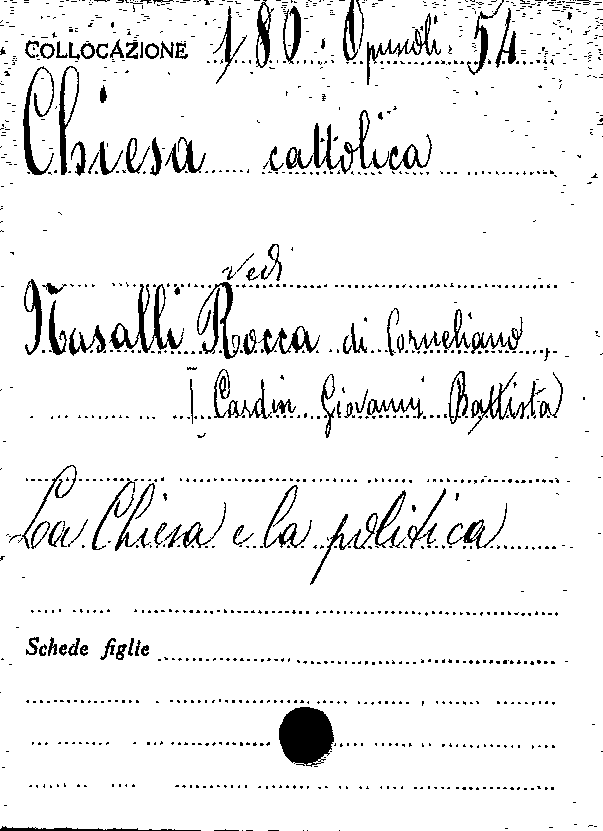 COLLOCAZIONE 180. Opuscoli. 54
Chiesa cattolica
vedi
Nasalli Rocca di Corneliano,
[Cardin. Giovanni Battista]
La Chiesa e la politica
Schede figlie